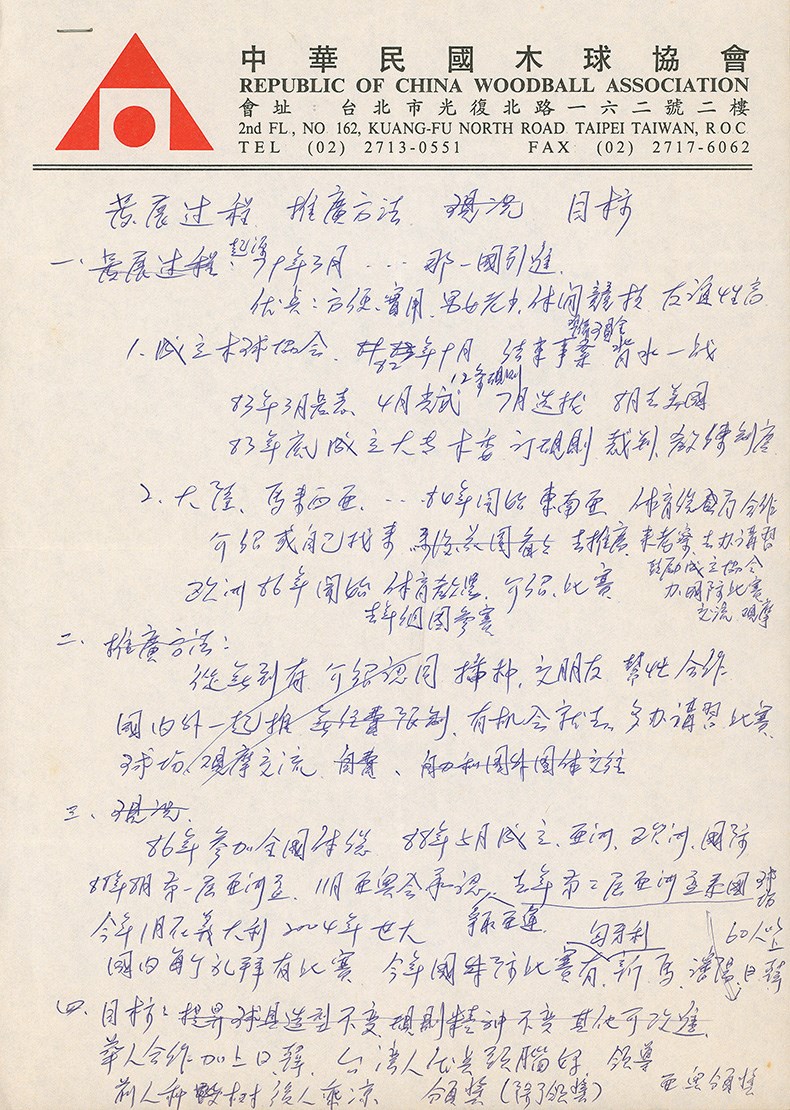 中華民國木球協會
REPUBLIC OF CHINA WOODBALL ASSOCIATION
會址：台北市光復北路一六二號二樓
2nd FL, NO 162, KUANG-FU NORTH ROAD TAIPEI TAIWAN, R O C
TEL (02) 2713-0551 FAX (02) 2717-6062
發展过程 推廣方法 現況 目标
一、發展过程：起源 79年3月 … 那一國引進
优点：方便、實用、男女老少、休闲競技 友誼性高
1. 成立木球协会 82年10月 結束事業 背水一战
83年3月發表 4月 12条規則 7月选拔 8月去美國
83年底成立大专木委 訂規則 裁判、教練制度
2. 大陸、馬來西亜、… 84年開始東南亜 体育總會 合作
介紹或自己找來 去推廣 來考察、去办講習
鼓励成立协会
欧洲86年開始 体育 介紹、比賽 办國際比賽
去年 國參賽 交流 观摩
二、推廣方法：
從無到有 介紹認同 播种、交朋友 幫忙 合作
國内外一起推 無任費限制、有机会就去、多办講習 比賽
球场、观摩交流 自費、 國外團体交往
三、現況
86年參加全國体總 88年5月成立、亜洲、欧洲、國际
88年8月第一屆亜洲盃 11月亜奥会承認、去年第二屆亜洲盃泰國 球场
今年1月在義大利 2004年世大 爭取亜運 匈牙利 60人以上
國内每个礼拜有比賽 今年國际比賽有、新、馬、瀋陽、日、韓
四、目标：提昇球具造型不变 規則精神不变 其他可改進
華人合作加上日、韓、台湾人优点頭腦好 領導
前人种樹後人乘凉 頒獎（除了領獎） 亜奥頒獎